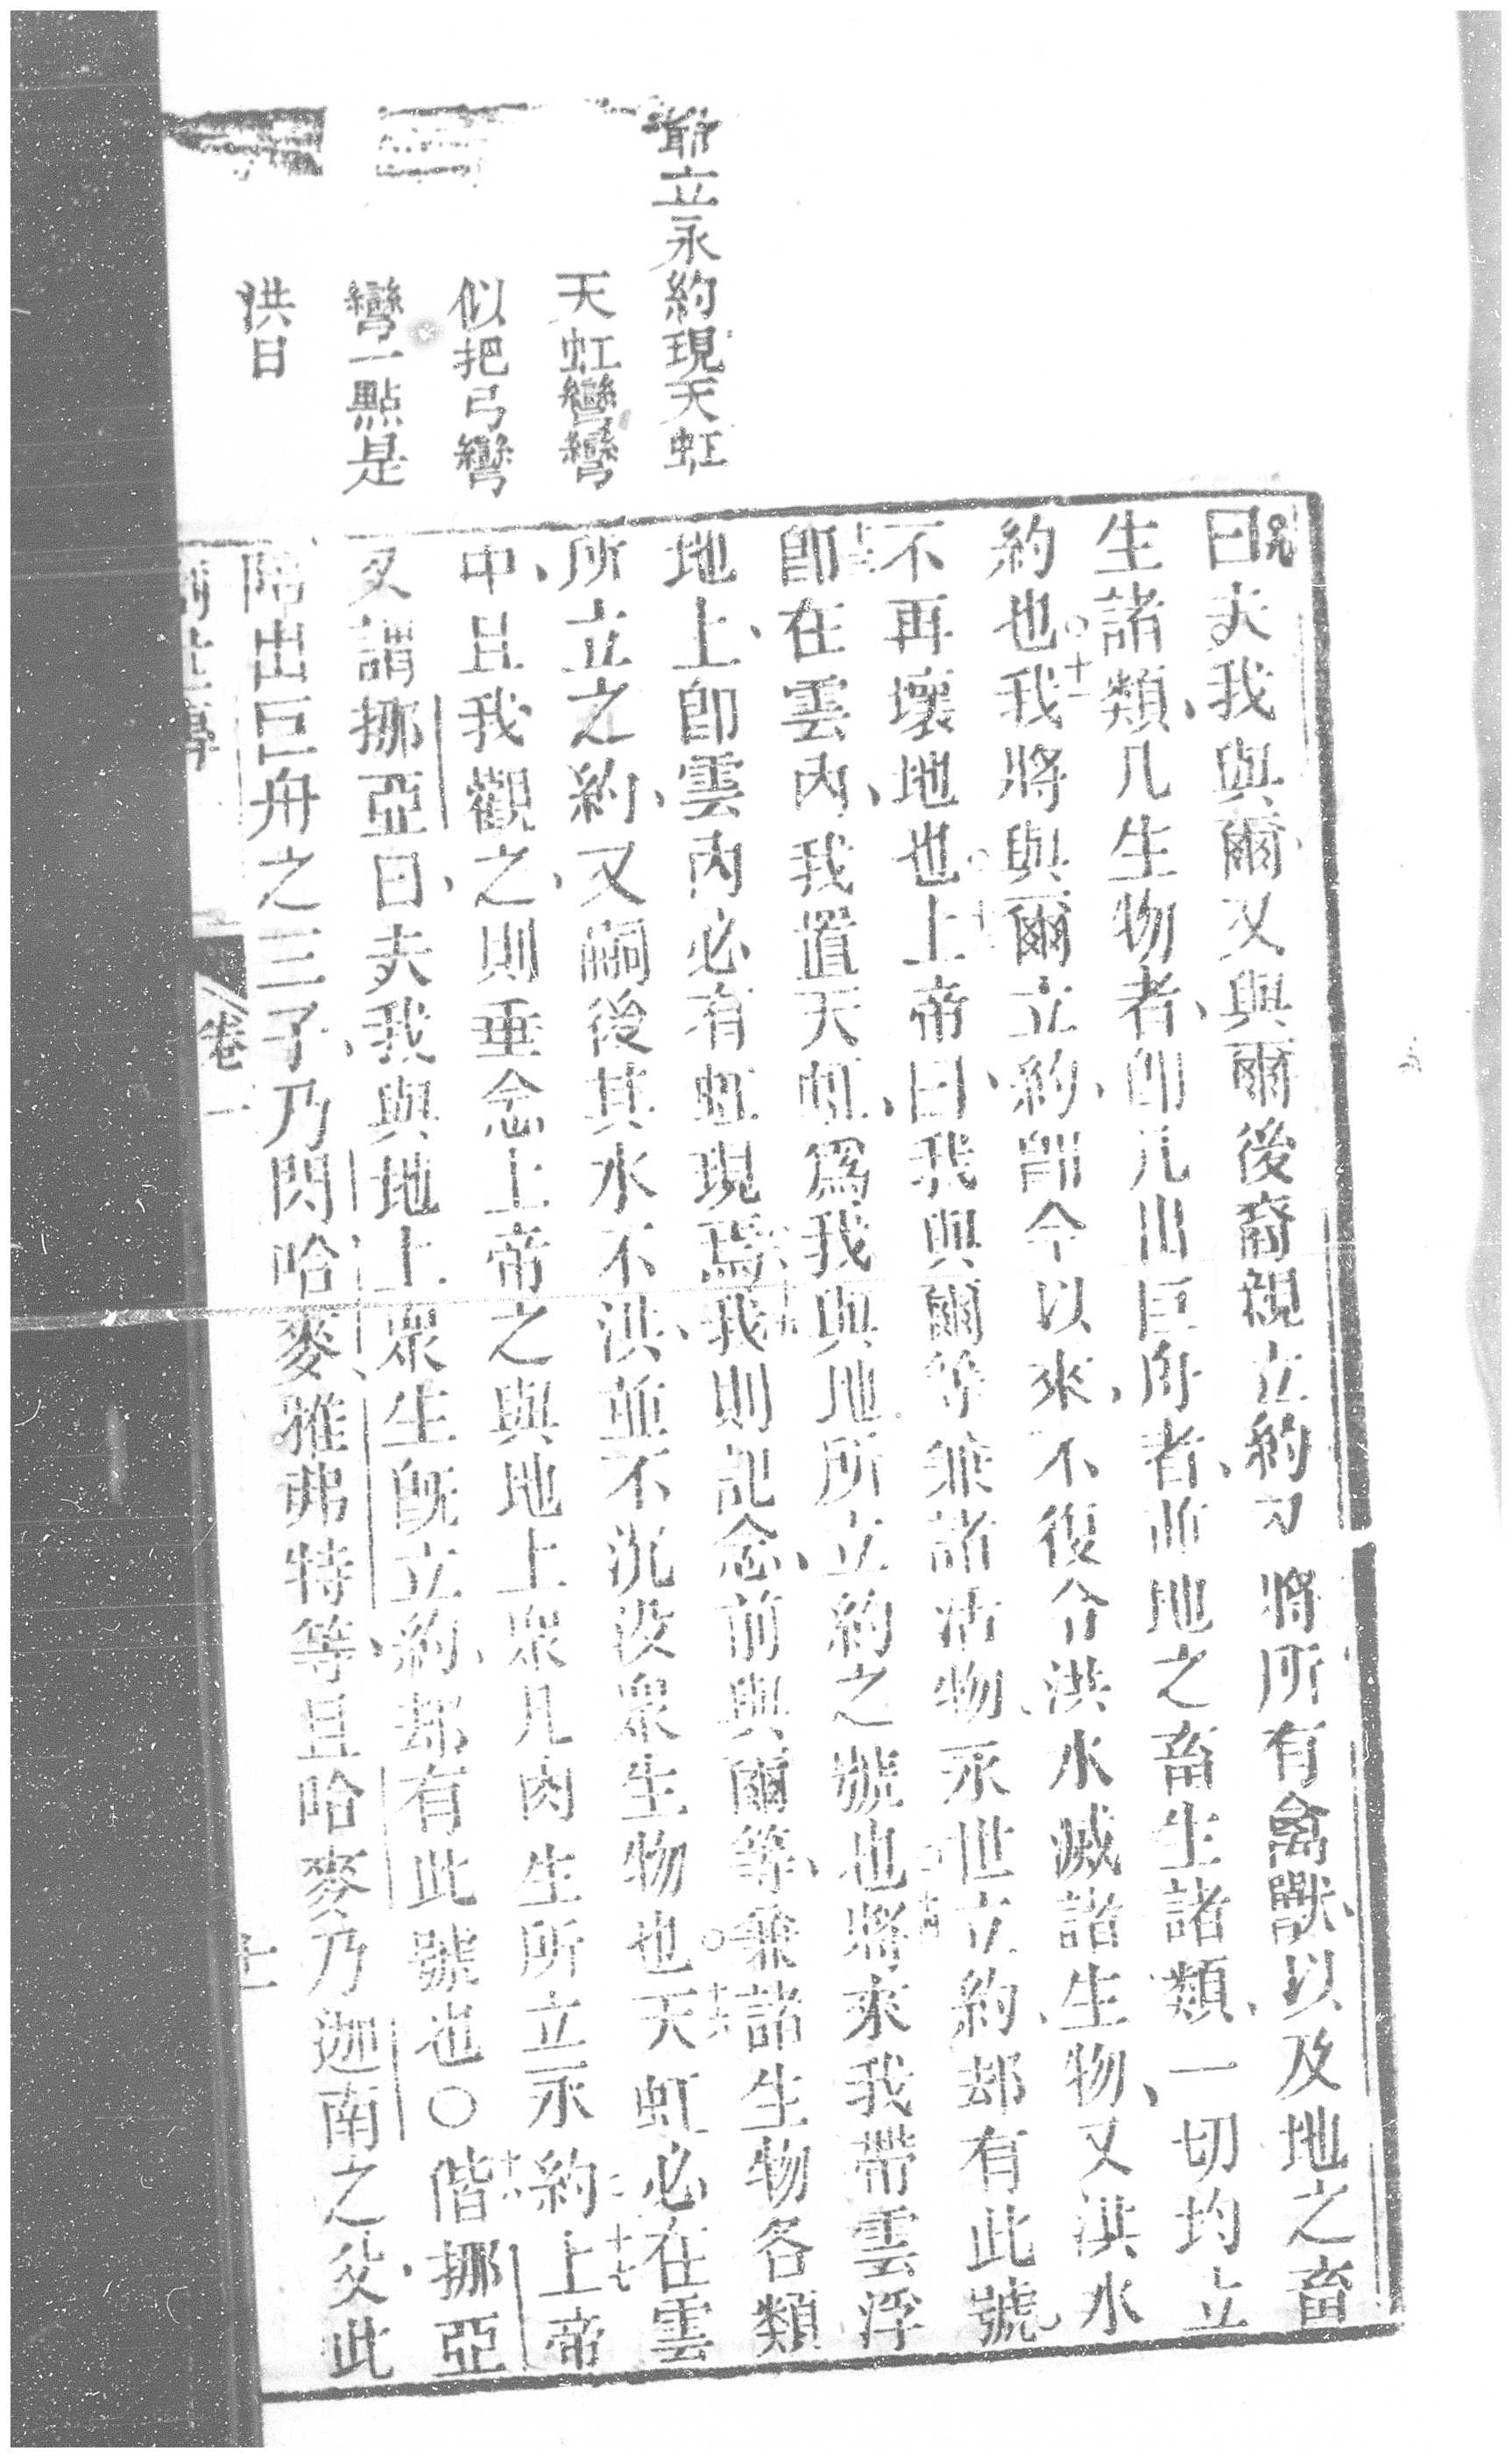 爺立永約現天虹
天虹彎彎
似把弓彎
彎一點是
洪日
曰夫我與爾又與爾後裔親立約 將所有禽獸以及地之畜
生諸類凡生物者卽凡出巨舟者並地之畜生諸類一切均立
約也○十一我將與爾立約卽今以來不復令洪水滅諸生物又洪水
不再壞地也上帝曰我與爾等兼諸活物永世立約却有此號
卽在雲內我置天虹爲我與地所立約之號也將來我帶雲浮
地上卽雲內必有虹現焉我則記念前與爾等兼諸生物各類
所立之約又嗣後其水不洪並不沉沒眾生物也○天虹必在雲
中且我觀之則垂念上帝之與地上眾凡肉生所立永約十七上帝
又謂挪亞曰夫我與地上眾生旣立約却有此號也○偕挪亞
陪出巨舟之三子乃閃哈麥雅弗特等且哈麥乃迦南之父此
卷一